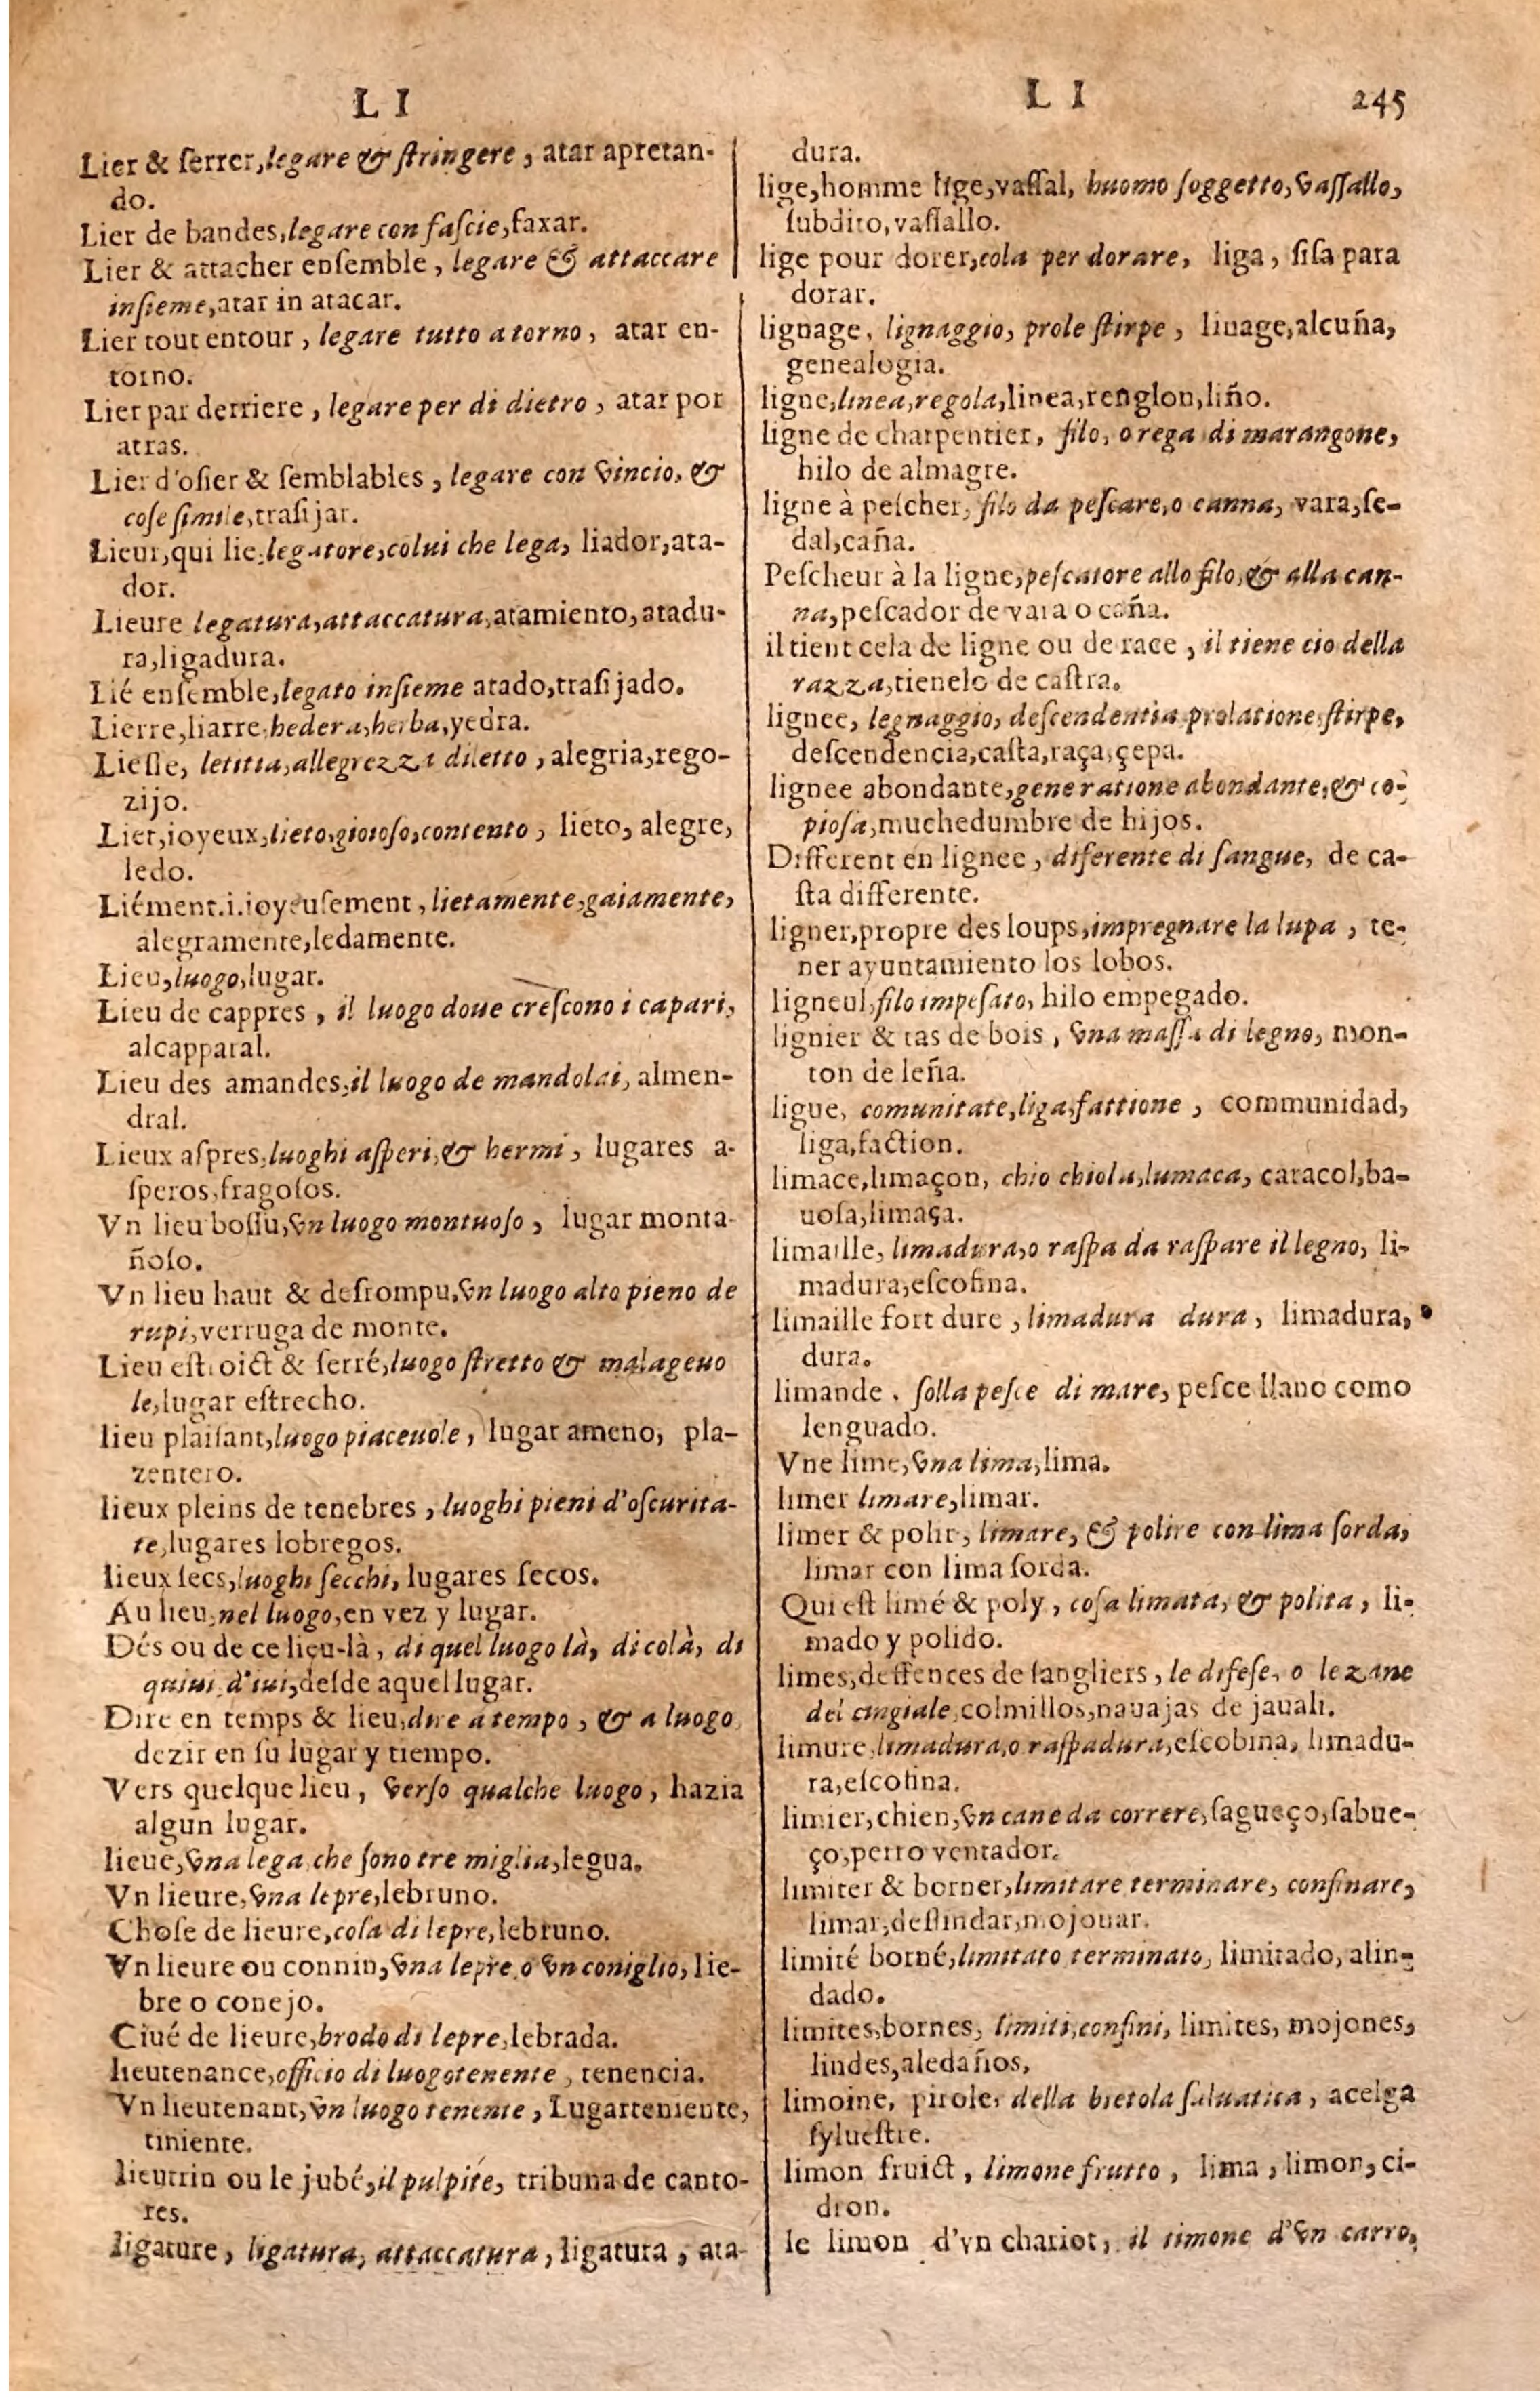 L I
Lier & ſerrer, legare & ſtringere, atar apretan-
do.
Lier de bandes, legare con faſcie, faxar.
Lier & attacher enſemble, legare & attaccare
inſieme, atar in atacar.
Lier tout entour, legare tutto a torno, atar en-
torno.
Lier par derriere, legare per di dietro, atar por
atras.
Lier d'oſier & ſemblables, legare con vincio, &
coſe ſimile, traſijar.
Lieur, qui lie, legatore, colui che lega, liador, ata-
dor.
Lieure legatura, attaccatura, atamiento, atadu-
ra, ligadura.
Lié enſemble, legato inſieme atado, traſijado.
Lierre, liarre, hedera, herba, yedra.
Lieſſe, letitia, allegrezza diletto, alegria, rego-
zijo.
Liet, ioyeux, lieto, gioioſo, contento, lieto, alegre,
ledo.
Liément. i. ioyeuſement, lietamente, gaiamente,
alegramente, ledamente.
Lieu, luogo, lugar.
Lieu de cappres, il luogo doue creſcono i capari,
alcapparal.
Lieu des amandes, il luogo de mandolai, almen-
dral.
Lieux aſpres, luoghi aſperi, & hermi, lugares a-
ſperos, fragoſos.
Vn lieu boſſu, vn luogo montuoſo, lugar monta-
ñoſo.
Vn lieu haut & deſrompu, vn luogo alto pieno de
rupi, verruga de monte.
Lieu eſtroict & ſerré, luogo ſtretto & malageuo
le, lugar eſtrecho.
lieu plaiſant, luogo piaceuole, lugar ameno, pla-
zentero.
lieux pleins de tenebres, luoghi pieni d'oſcurita-
te, lugares lobregos.
lieux ſecs, luoghi ſecchi, lugares ſecos.
Au lieu, nel luogo, en vez y lugar.
Dés ou de ce lieu-là, di quel luogo là, di colà, di
quiui, d'iui, deſde aquel lugar.
Dire en temps & lieu, dire a tempo, & a luogo,
dezir en ſu lugar y tiempo.
Vers quelque lieu, verſo qualche luogo, hazia
algun lugar.
lieue, vna lega che ſono tre miglia, legua.
Vn lieure, vna lepre, lebruno.
Choſe de lieure, coſa di lepre, lebruno.
Vn lieure ou connin, vna lepre o vn coniglio, lie-
bre o conejo.
Ciué de lieure, brodo di lepre, lebrada.
lieutenance, officio di luogotenente, tenencia.
Vn lieutenant, vn luogo tenente, Lugarteniente,
tiniente.
lieutrin ou le jubé, il pulpite, tribuna de canto-
res.
ligature, ligatura, attaccatura, ligatura, ata-
L I 245
dura.
lige, homme lige, vaſſal, huomo ſoggetto, vaſſallo,
ſubdito, vaſſallo.
lige pour dorer, cola per dorare, liga, ſiſa para
dorar.
lignage, lignaggio, prole ſtirpe, linage, alcuña,
genealogia.
ligne, linea, regola, linea, renglon, liño.
ligne de charpentier, filo, o rega di marangone,
hilo de almagre.
ligne à peſcher, filo da peſcare, o canna, vara, ſe-
dal, caña.
Peſcheur à la ligne, peſcatore allo filo, & alla can-
na, peſcador de vara o caña.
il tient cela de ligne ou de race, il tiene cio della
razza, tienelo de caſtra.
lignee, legnaggio, deſcendentia prolatione ſtirpe,
deſcendencia, caſta, raça, çepa.
lignee abondante, generatione abondante, & co-
pioſa, muchedumbre de hijos.
Different en lignee, diferente di ſangue, de ca-
ſta differente.
ligner, propre des loups, impregnare la lupa, te-
ner ayuntamiento los lobos.
ligneul, filo impeſato, hilo empegado.
lignier & tas de bois, vna maſſa di legno, mon-
ton de leña.
ligue, comunitate, liga, fattione, communidad,
liga, faction.
limace, limaçon, chio chiola, lumaca, caracol, ba-
uoſa, limaça.
limaille, limadura, o raſpa da raſpare il legno, li-
madura, eſcofina.
limaille fort dure, limadura dura, limadura,
dura.
limande, ſolla peſce di mare, peſce llano como
lenguado.
Vne lime, vna lima, lima.
limer limare, limar.
limer & polir, limare, & polire con lima ſorda,
limar con lima ſorda.
Qui eſt limé & poly, coſa limata, & polita, li-
mado y polido.
limes, deffences de ſangliers, le difeſe, o le zane
del cingiale, colmillos, nauajas de jauali.
limure, limadura, o raſpadura, eſcobina, limadu-
ra, eſcofina.
limier, chien, vn cane da correre, ſagueço, ſabue-
ço, perro ventador.
limiter & borner, limitare terminare, confinare,
limar, deſlindar, mojonar.
limité borné, limitato terminato, limitado, alin-
dado.
limites, bornes, limiti, confini, limites, mojones,
lindes, aledaños,
limoine, pirole, della bietola ſaluatica, acelga
ſylueſtre.
limon fruict, limone frutto, lima, limon, ci-
dron.
le limon d'vn chariot, il timone d'vn carro,